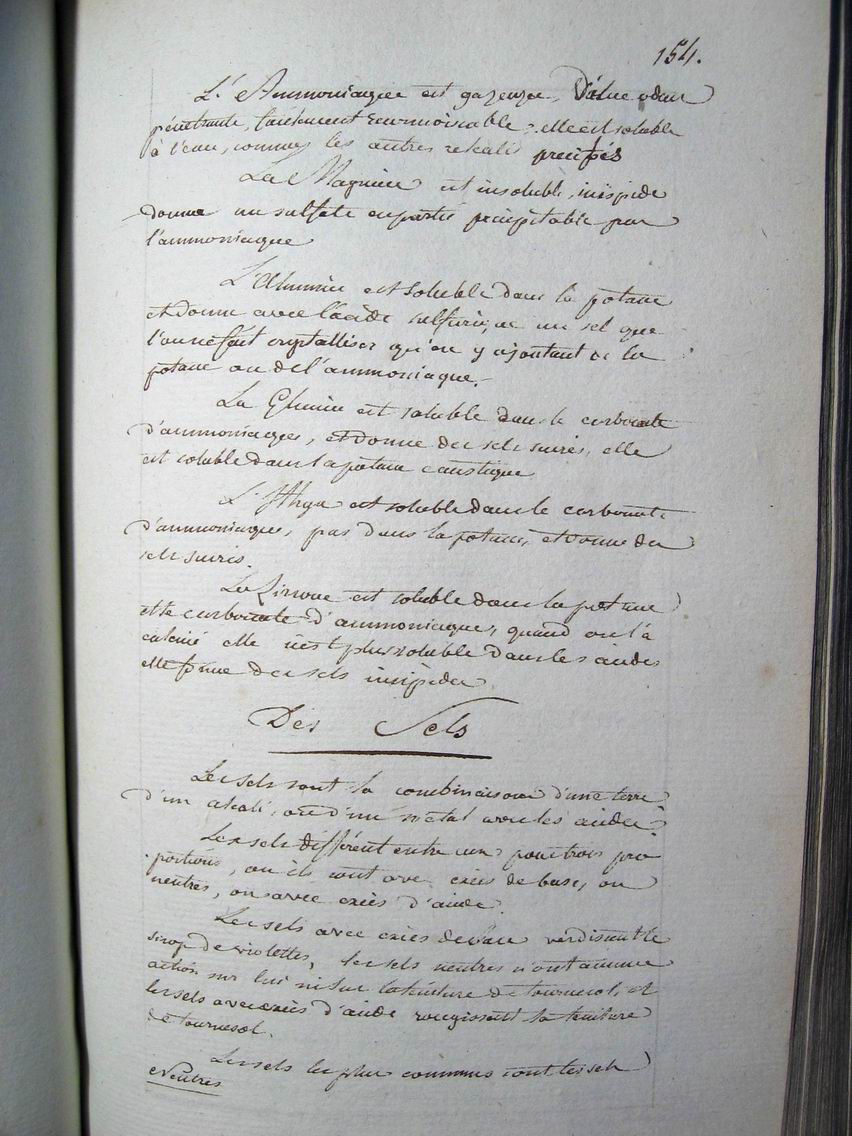 154.
L'Ammoniaque est gazeuse, D'une odeur
pénétrante, facilement reconnoissable, elle est soluble
à l'eau, comme les autres alkalis
La Magnésie est insoluble, insipide
donne un sulfate en partie précipitable par
l'ammoniaque
L'Alumine est soluble dans la potasse
et donne avec l'acide sulfurique un sel que
l'on ne fait crystalliser qu'en y ajoutant de la
potasse ou de l'ammoniaque.
La Glucine est soluble dans le carbonate
d'ammoniaque, et donne des sels sucrés, elle
est soluble dans la potasse caustique
L' est soluble dans le carbonate
d'ammoniaque, pas dans la potasse, et donne des
sels sucrés.
La Zircone est soluble dans la potasse
et le carbonate d'ammoniaque, quand on l'a
calciné elle n'est plus soluble dans les acides
elle forme des sels insipides
Des Sels
Les sels sont la combinaison d'une terre
d'un alkali, ou d'un métal avec les acides.
Les sels diffèrent entre eux pour trois pro
portions, ou ils sont avec excès de base, ou
neutres, ou avec excès d'acide.
Les sels avec excès de base verdissent le
sirop de violettes, les sels neutres n'ont aucune
action sur lui ni sur la teinture de tournesol, et
les sels avec excès d'acide rougissent la teinture
de tournesol.
Les sels les plus communs sont les sels
Neutres